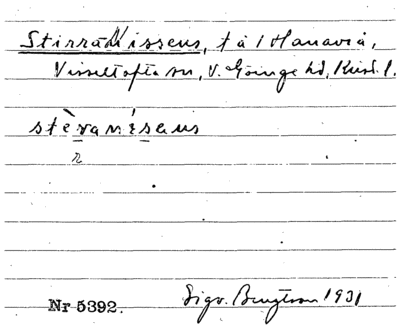 Stirradissens, t å i Hanaviå,
Visseltofta sn, V. Göinge hd, Krist. l.
stèvanísens
r
Nr 5392. Sigv. Bengtson 1931